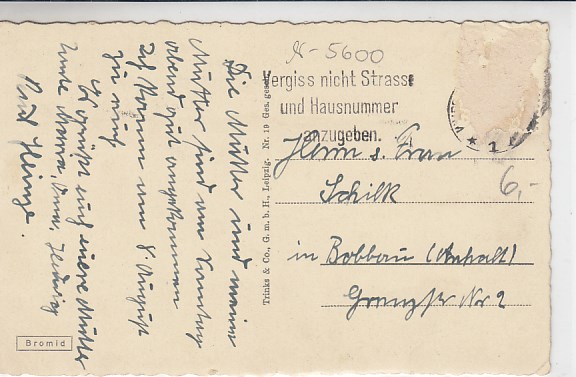 N-5600
Vergiss nicht Strasse
und Hausnummer
anzugeben.
Herrn u. Frau
Schilk
in Bobbau (Anhalt)
Grenzstr Nr 2
6,-
Trinks & Co., G. m. b. H., Leipzig. Nr. 19 Ges. gesch.
Die Mutter und meine
Mutter sind am Sonntag
abend gut angekommen
Ich komme am 8. August
zu euch
Es grüßt euch eure Mutter
Bromid